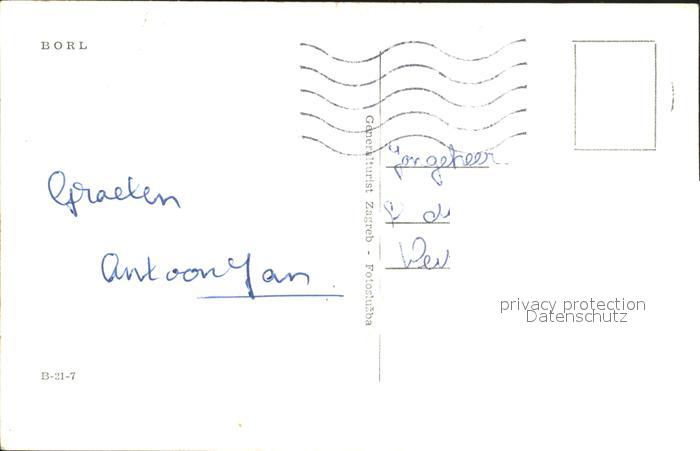 BORL
Groeten
Antoon Jan
Generalturist Zagreb - Fotoslužba
Jongeheer
d
B-21-7
privacy protection
Datenschutz